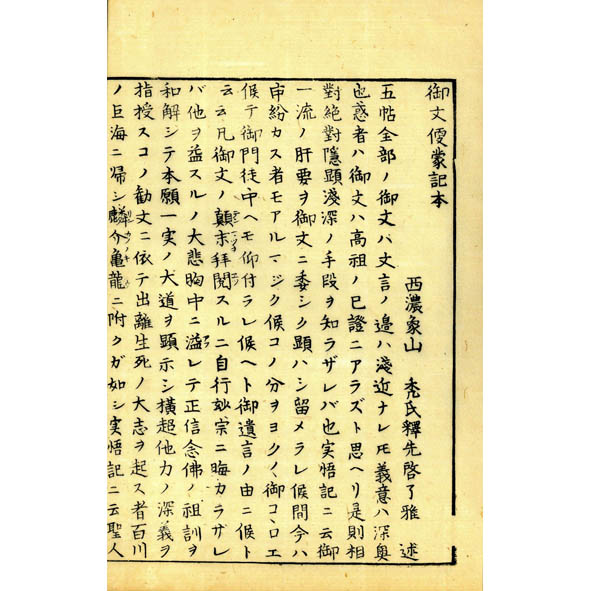 御文便蒙記本
西濃象山 禿氏釋先啓了雅 述
五帖全部ノ御文ハ文言ノ邊ハ淺近ナレ𪜈義意ハ深奥
也惑者ハ御文ハ高祖ノ已證ニアラズト思ヘリ是則相
對絶對隱顯淺深ノ手段ヲ知ラザレバ也実悟記ニ云御
一流ノ肝要ヲ御文ニ委シク顕ハシ留メラレ候間今ハ
申紛カス者モアルマジク候コノ分ヲヨク〳〵御コヽロエ
候テ御門徒中ヘモ仰付ラレ候ヘト御遺言ノ由ニ候ト
云云凡御文ノ顛末拜閲スルニ自行妙宗ニ晦カラザレ
バ他ヲ益スルノ大悲胸中ニ溢レテ正信念佛ノ祖訓ヲ
和解シテ本願一実ノ大道ヲ顯示シ横超他力ノ深義ヲ
指授スコノ勧文ニ依テ出離生死ノ大志ヲ起ス者百川
ノ巨海ニ帰シ麟介亀龍ニ附クガ如シ実悟記ニ云聖人